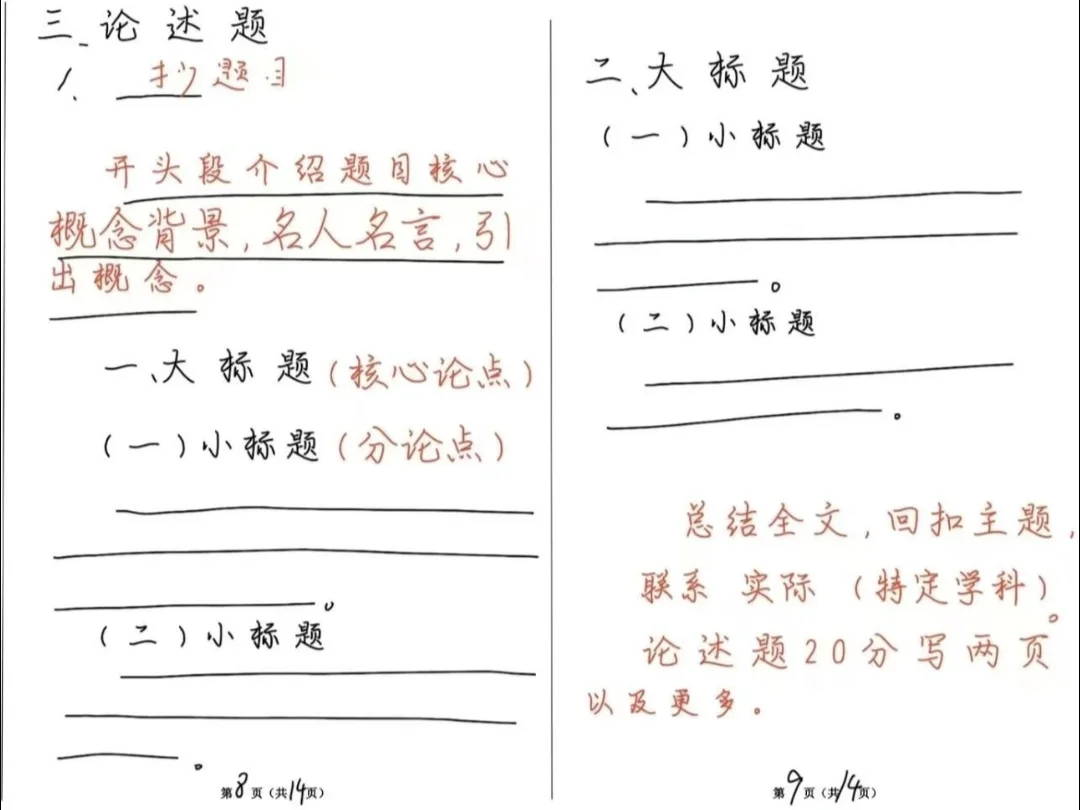 三、论述题
1. 抄题目
开头段介绍题目核心
概念背景,名人名言,引
出概念。
一、大标题(核心论点)
(一)小标题(分论点)
。
(二)小标题
。
第8页(共14页)
二、大标题
(一)小标题
。
(二)小标题
。
总结全文,回扣主题,
联系 实际(特定学科)。
论述题20分写两页
以及更多。
第9页(共14页)